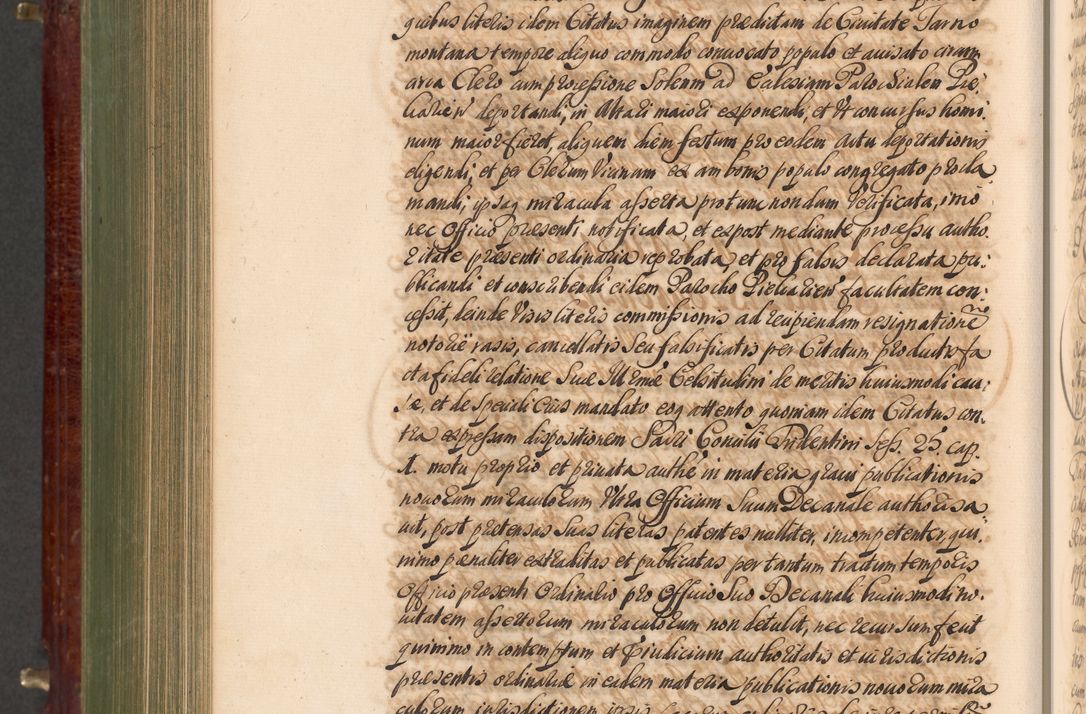 quibus literis idem Citatus imaginem prædictam de Civitate Tarno
montana tempore aliquo commodo convocato populo et avisato circum
arva Clero cum processione Solenni ad Ecclesiam Parochialem Pie:
carien deportandi, in Altari maiori exponendi, et Ut concursus homi:
num maior fieret, aliquem diem festum pro eodem Actu deportationis
eligendi, et per Clerum Vicinum ex ambonis populo congregato procla
mandi, ipsaq miracula asserta pro tunc nondum Verificata, imo
nec Officio præsenti notificata, et expost mediante processu autho:
ritate præsenti ordinaria reprobata, et pro falsis declarata pu:
blicandi et conscribendi eidem Parocho Piekarien facultatem con:
cessit, deinde Visis literis commissionis ad recipiendam resignationem
notorie rasis, cancellatis seu falsificatis per Citatum productis fa
cta fideli relatione Suæ Illrmæ Celsitudini de meritis huiusmodi cau:
sæ, et de speciali Eius mandato eoq attento quoniam idem Citatus con:
tra expressam dispositionem Sacri Concilii Tridentini Sess. 25. cap.
1. motu proprio et privata authe in materia gravi publicationis
novorum miraculorum Ultra Officium Suum Decanale authorisa:
vit, post prætensas Suas literas patentes nulliter, incompetenter, qui:
nimo pænaliter extraditas et publicatas per tantum tractum temporis
Officio præsenti Ordinario pro Officio Suo Decanali huiusmodi no:
vitatem assertorum miraculorum non detulit, nec recursum fecit
quinimo in contemptum et Præiudicium authoritatis et iurisdictionis
præsentis ordinariæ in eadem materia publicationis novorum mira
culorum iurisdictionem